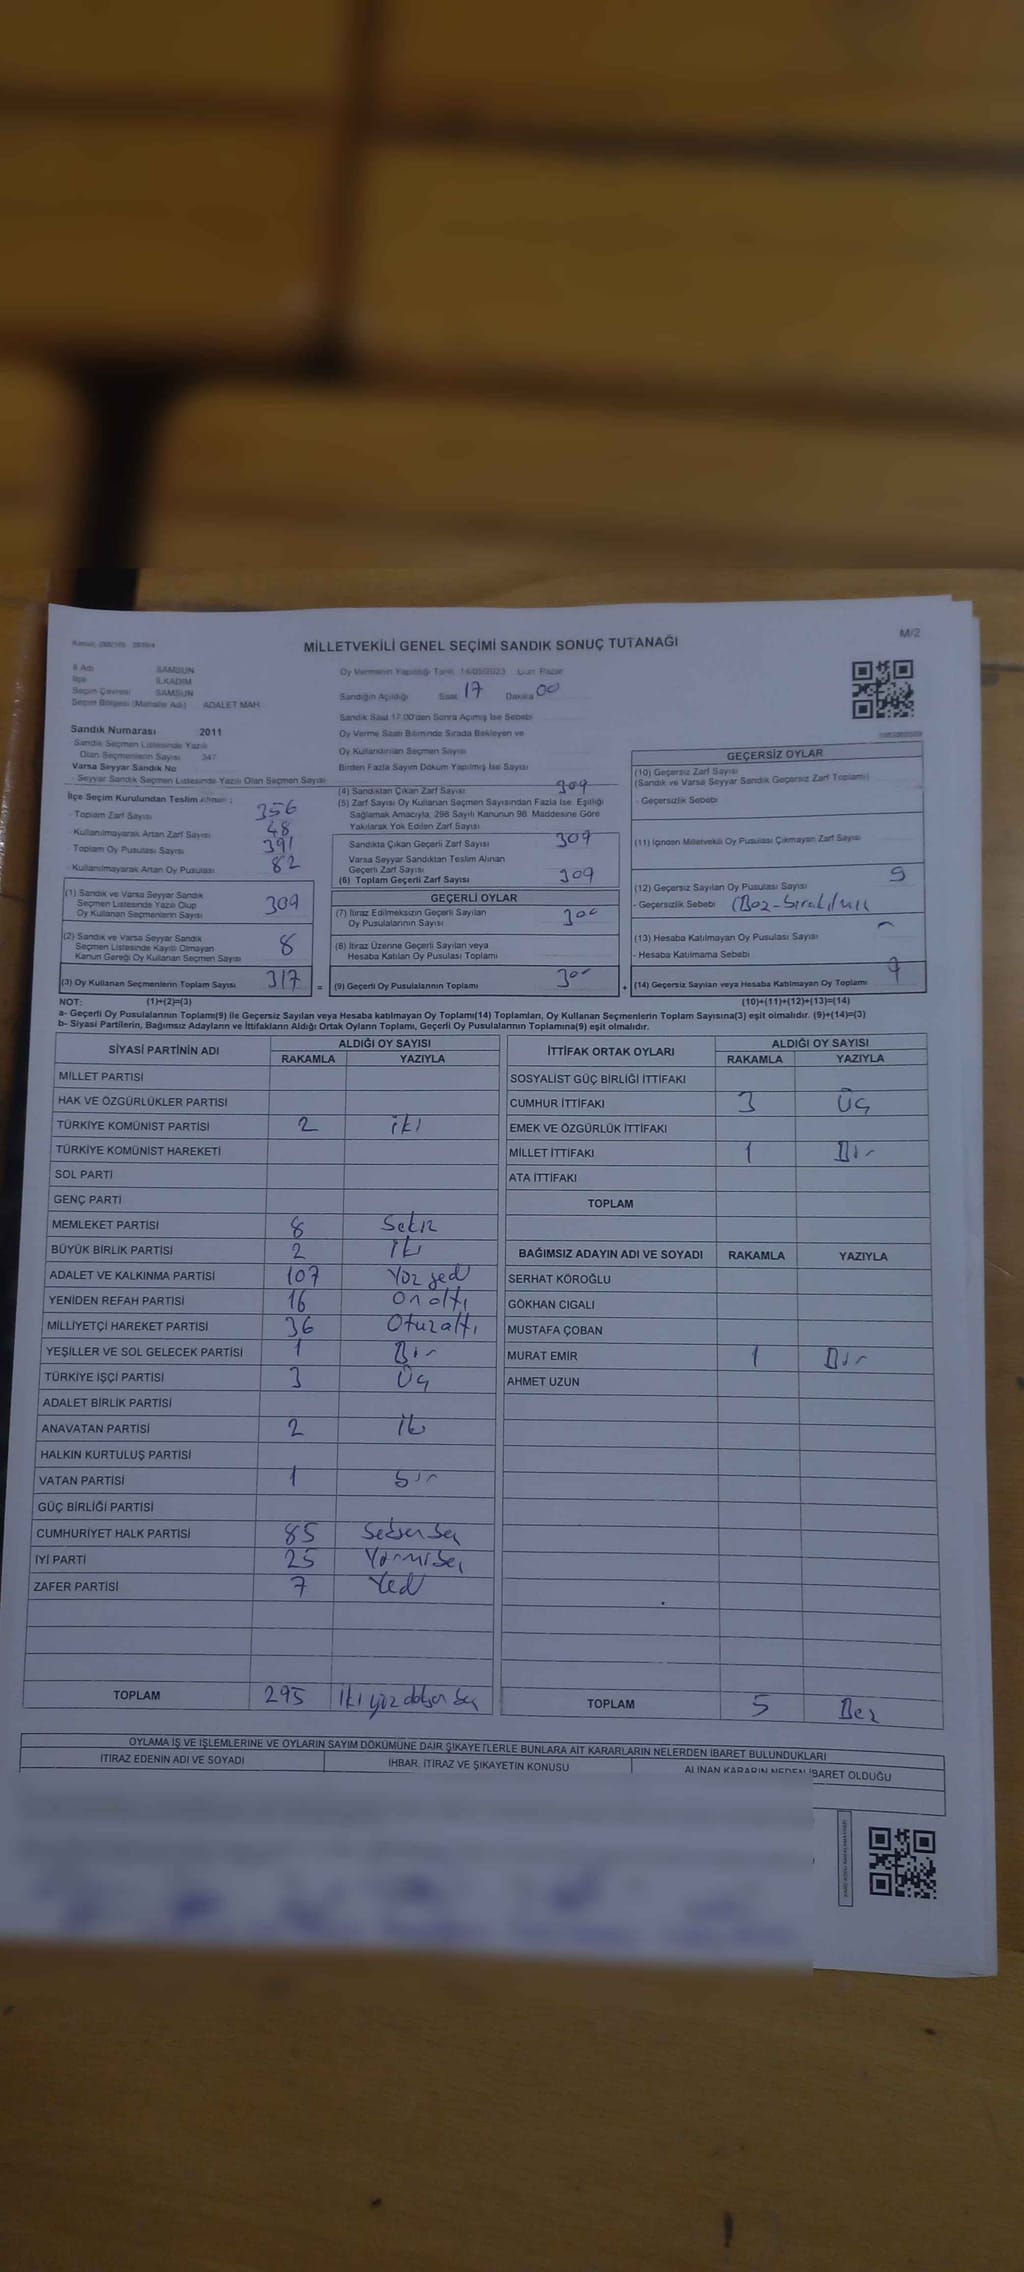 MİLLETVEKİLİ GENEL SEÇİMİ SANDIK SONUÇ TUTANAĞI
M/2
İl Adı SAMSUN
İlçe İLKADIM
Seçim Çevresi SAMSUN
Seçim Bölgesi (Mahalle Adı) ADALET MAH.
Oy Vermenin Yapıldığı Tarih 14/05/2023 Gün: Pazar
Sandığın Açıldığı Saat 17 Dakika 00
Sandık Saat 17.00'den Sonra Açımış İse Sebebi
Oy Verme Saati Bitiminde Sırada Bekleyen ve
Oy Kullandırılan Seçmen Sayısı
Birden Fazla Sayım Döküm Yapılmış İse Sayısı
Sandık Numarası 2011
Sandık Seçmen Listesinde Yazılı
Olan Seçmenlerin Sayısı 347
Varsa Seyyar Sandık No
- Seyyar Sandık Seçmen Listesinde Yazılı Olan Seçmen Sayısı
İlçe Seçim Kurulundan Teslim Alınan ;
- Toplam Zarf Sayısı 356
- Kullanılmayarak Artan Zarf Sayısı 48
- Toplam Oy Pusulası Sayısı 391
- Kullanılmayarak Artan Oy Pusulası 82
(1) Sandık ve Varsa Seyyar Sandık
Seçmen Listesinde Yazılı Olup
Oy Kullanan Seçmenlerin Sayısı 309
(2) Sandık ve Varsa Seyyar Sandık
Seçmen Listesinde Kayıtlı Olmayan
Kanun Gereği Oy Kullanan Seçmen Sayısı 8
(3) Oy Kullanan Seçmenlerin Toplam Sayısı 317 =
(4) Sandıktan Çıkan Zarf Sayısı 309
(5) Zarf Sayısı Oy Kullanan Seçmen Sayısından Fazla İse, Eşitliği
Sağlamak Amacıyla, 298 Sayılı Kanunun 98. Maddesine Göre
Yakılarak Yok Edilen Zarf Sayısı
Sandıkta Çıkan Geçerli Zarf Sayısı 309
Varsa Seyyar Sandıktan Teslim Alınan
Geçerli Zarf Sayısı
(6) Toplam Geçerli Zarf Sayısı 309
GEÇERLİ OYLAR
(7) İtiraz Edilmeksizin Geçerli Sayılan
Oy Pusulalarının Sayısı 300
(8) İtiraz Üzerine Geçerli Sayılan veya
Hesaba Katılan Oy Pusulası Toplamı
(9) Geçerli Oy Pusulalarının Toplamı 300 +
GEÇERSİZ OYLAR
(10) Geçersiz Zarf Sayısı
(Sandık ve Varsa Seyyar Sandık Geçersiz Zarf Toplamı)
- Geçersizlik Sebebi
(11) İçinden Milletvekili Oy Pusulası Çıkmayan Zarf Sayısı
(12) Geçersiz Sayılan Oy Pusulası Sayısı 9
- Geçersizlik Sebebi
(13) Hesaba Katılmayan Oy Pusulası Sayısı -
- Hesaba Katılmama Sebebi
(14) Geçersiz Sayılan veya Hesaba Katılmayan Oy Toplamı 9
NOT: (1)+(2)=(3) (10)+(11)+(12)+(13)=(14)
a- Geçerli Oy Pusulalarının Toplamı(9) ile Geçersiz Sayılan veya Hesaba katılmayan Oy Toplamı(14) Toplamları, Oy Kullanan Seçmenlerin Toplam Sayısına(3) eşit olmalıdır. (9)+(14)=(3)
b- Siyasi Partilerin, Bağımsız Adayların ve İttifakların Aldığı Ortak Oyların Toplamı, Geçerli Oy Pusulalarının Toplamına(9) eşit olmalıdır.
SİYASİ PARTİNİN ADI ALDIĞI OY SAYISI
RAKAMLA YAZIYLA
MİLLET PARTİSİ
HAK VE ÖZGÜRLÜKLER PARTİSİ
TÜRKİYE KOMÜNİST PARTİSİ 2 iki
TÜRKİYE KOMÜNİST HAREKETİ
SOL PARTİ
GENÇ PARTİ
MEMLEKET PARTİSİ 8 Sekiz
BÜYÜK BİRLİK PARTİSİ 2 iki
ADALET VE KALKINMA PARTİSİ 107 Yüz yedi
YENİDEN REFAH PARTİSİ 16 On altı
MİLLİYETÇİ HAREKET PARTİSİ 36 Otuzaltı
YEŞİLLER VE SOL GELECEK PARTİSİ 1 Bir
TÜRKİYE İŞÇİ PARTİSİ 3 Üç
ADALET BİRLİK PARTİSİ
ANAVATAN PARTİSİ 2 iki
HALKIN KURTULUŞ PARTİSİ
VATAN PARTİSİ 1 bir
GÜÇ BİRLİĞİ PARTİSİ
CUMHURİYET HALK PARTİSİ 85 Seksen beş
İYİ PARTİ 25 Yirmi beş
ZAFER PARTİSİ 7 Yedi
TOPLAM 295 iki yüz doksan beş
İTTİFAK ORTAK OYLARI ALDIĞI OY SAYISI
RAKAMLA YAZIYLA
SOSYALİST GÜÇ BİRLİĞİ İTTİFAKI
CUMHUR İTTİFAKI 3 Üç
EMEK VE ÖZGÜRLÜK İTTİFAKI
MİLLET İTTİFAKI 1 Bir
ATA İTTİFAKI
TOPLAM
BAĞIMSIZ ADAYIN ADI VE SOYADI RAKAMLA YAZIYLA
SERHAT KÖROĞLU
GÖKHAN CIGALI
MUSTAFA ÇOBAN
MURAT EMİR 1 Bir
AHMET UZUN
TOPLAM 5 Beş
OYLAMA İŞ VE İŞLEMLERİNE VE OYLARIN SAYIM DÖKÜMÜNE DAİR ŞİKAYETLERLE BUNLARA AİT KARARLARIN NELERDEN İBARET BULUNDUKLARI
İTİRAZ EDENİN ADI VE SOYADI İHBAR, İTİRAZ VE ŞİKAYETİN KONUSU ALINAN KARARIN NEDEN İBARET OLDUĞU